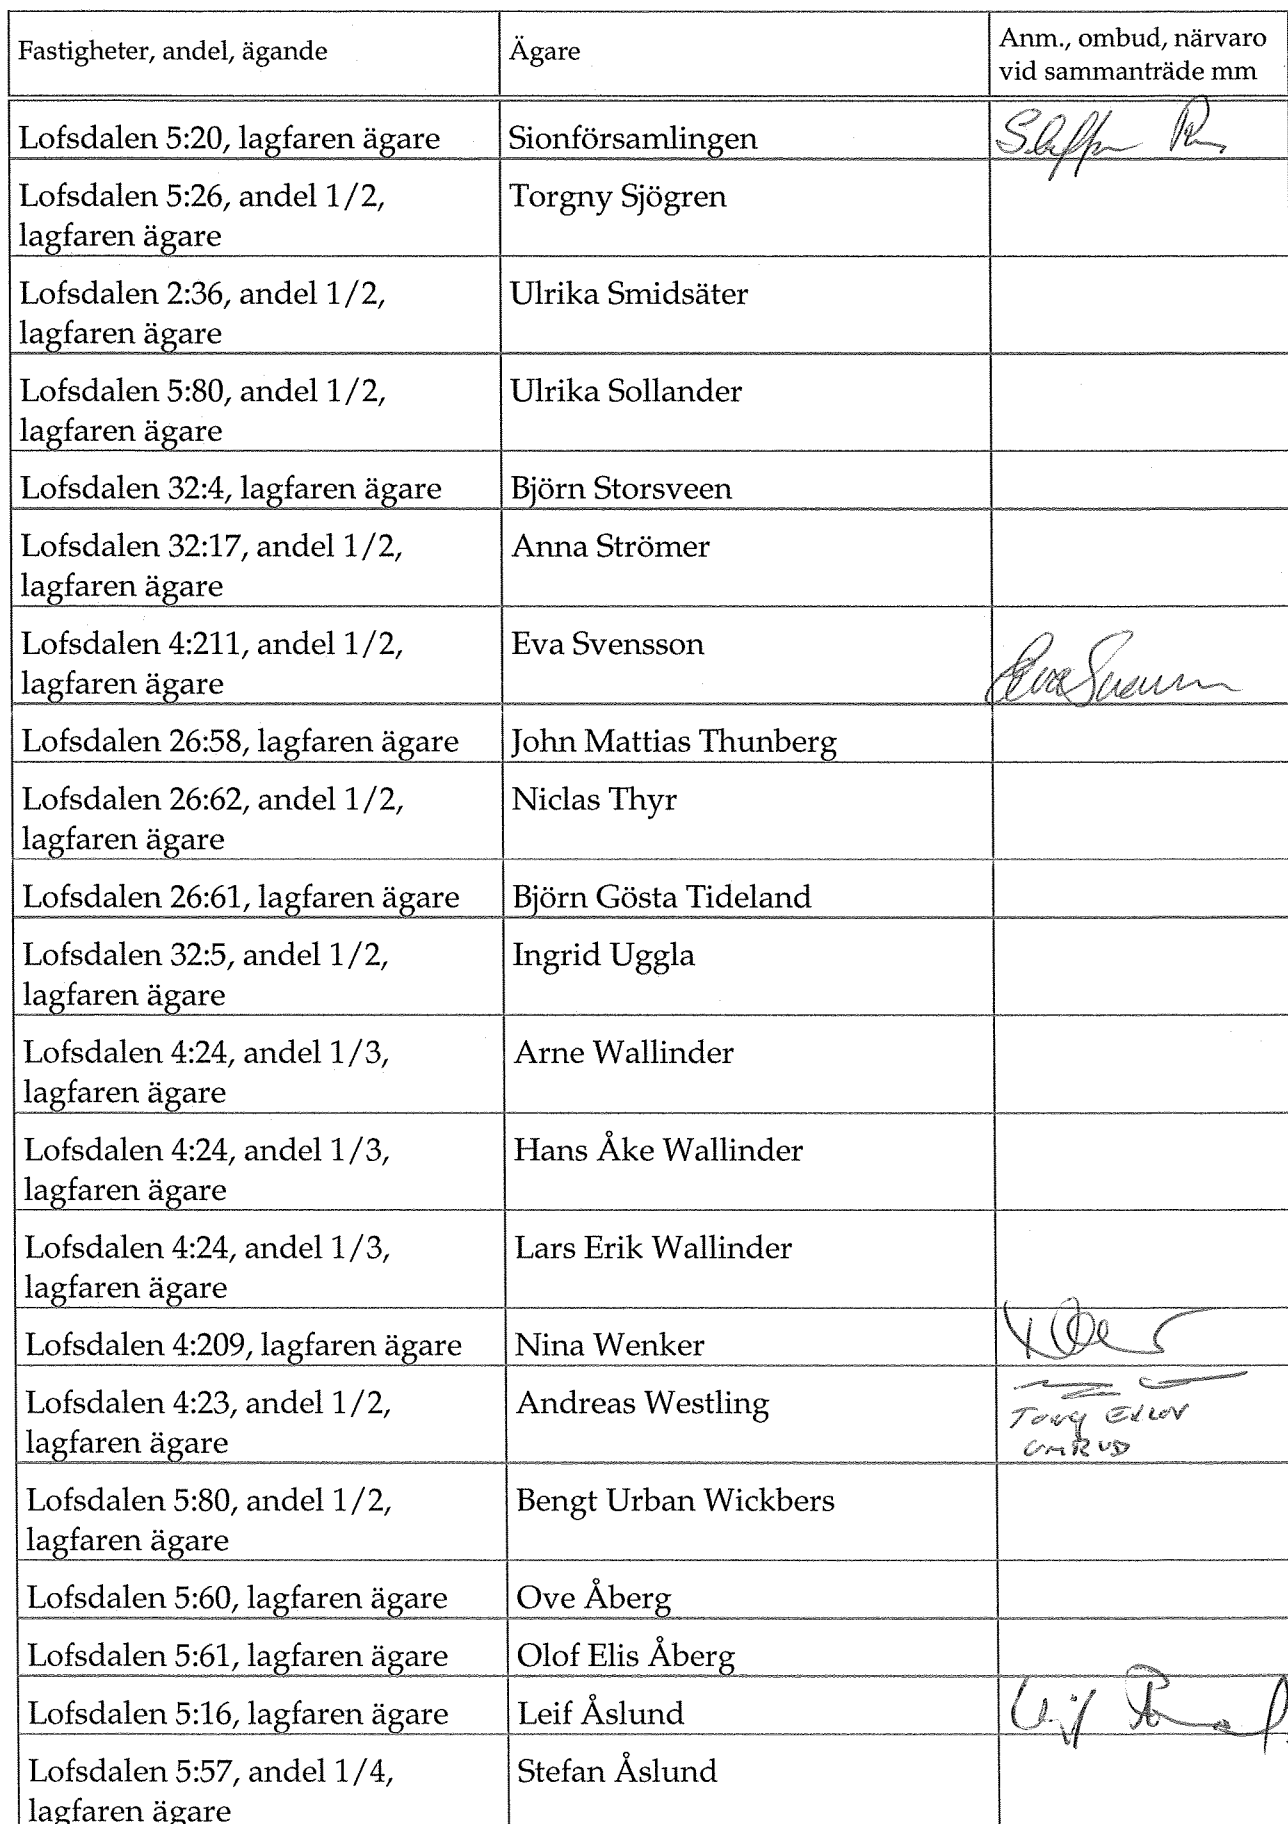 Fastigheter, andel, ägande
Ägare
Anm., ombud, närvaro
vid sammanträde mm
Lofsdalen 5:20, lagfaren ägare
Sionförsamlingen
Lofsdalen 5:26, andel 1/2,
lagfaren ägare
Torgny Sjögren
Lofsdalen 2:36, andel 1/2,
lagfaren ägare
Ulrika Smidsäter
Lofsdalen 5:80, andel 1/2,
lagfaren ägare
Ulrika Sollander
Lofsdalen 32:4, lagfaren ägare
Björn Storsveen
Lofsdalen 32:17, andel 1/2,
lagfaren ägare
Anna Strömer
Lofsdalen 4:211, andel 1/2,
lagfaren ägare
Eva Svensson
Eva Svensson
Lofsdalen 26:58, lagfaren ägare
John Mattias Thunberg
Lofsdalen 26:62, andel 1/2,
lagfaren ägare
Niclas Thyr
Lofsdalen 26:61, lagfaren ägare
Björn Gösta Tideland
Lofsdalen 32:5, andel 1/2,
lagfaren ägare
Ingrid Uggla
Lofsdalen 4:24, andel 1/3,
lagfaren ägare
Arne Wallinder
Lofsdalen 4:24, andel 1/3,
lagfaren ägare
Hans Åke Wallinder
Lofsdalen 4:24, andel 1/3,
lagfaren ägare
Lars Erik Wallinder
Lofsdalen 4:209, lagfaren ägare
Nina Wenker
Lofsdalen 4:23, andel 1/2,
lagfaren ägare
Andreas Westling
Tony
Lofsdalen 5:80, andel 1/2,
lagfaren ägare
Bengt Urban Wickbers
Lofsdalen 5:60, lagfaren ägare
Ove Åberg
Lofsdalen 5:61, lagfaren ägare
Olof Elis Åberg
Lofsdalen 5:16, lagfaren ägare
Leif Åslund
Leif
Lofsdalen 5:57, andel 1/4,
lagfaren ägare
Stefan Åslund